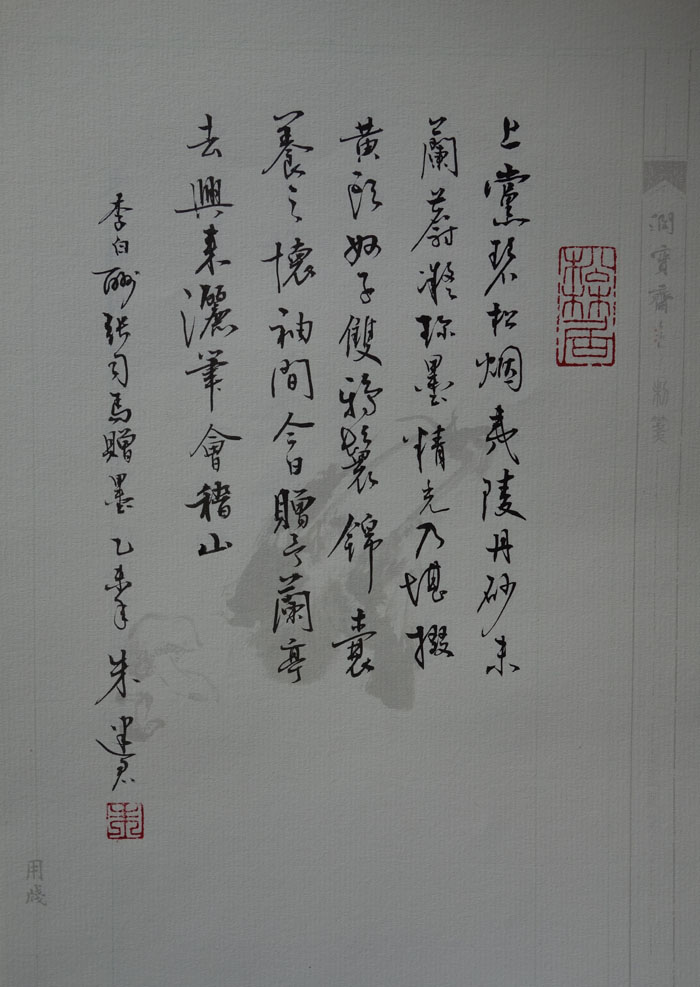 松林居
上黨碧松烟夷陵丹砂末
蘭蔚凝珍墨精光乃堪掇
黄頭奴子雙鴉鬟錦囊
養之懷袖間今日贈予蘭亭
去興來灑筆會稽山
李白酬張司馬贈墨 乙未年 朱建
朱
用箋